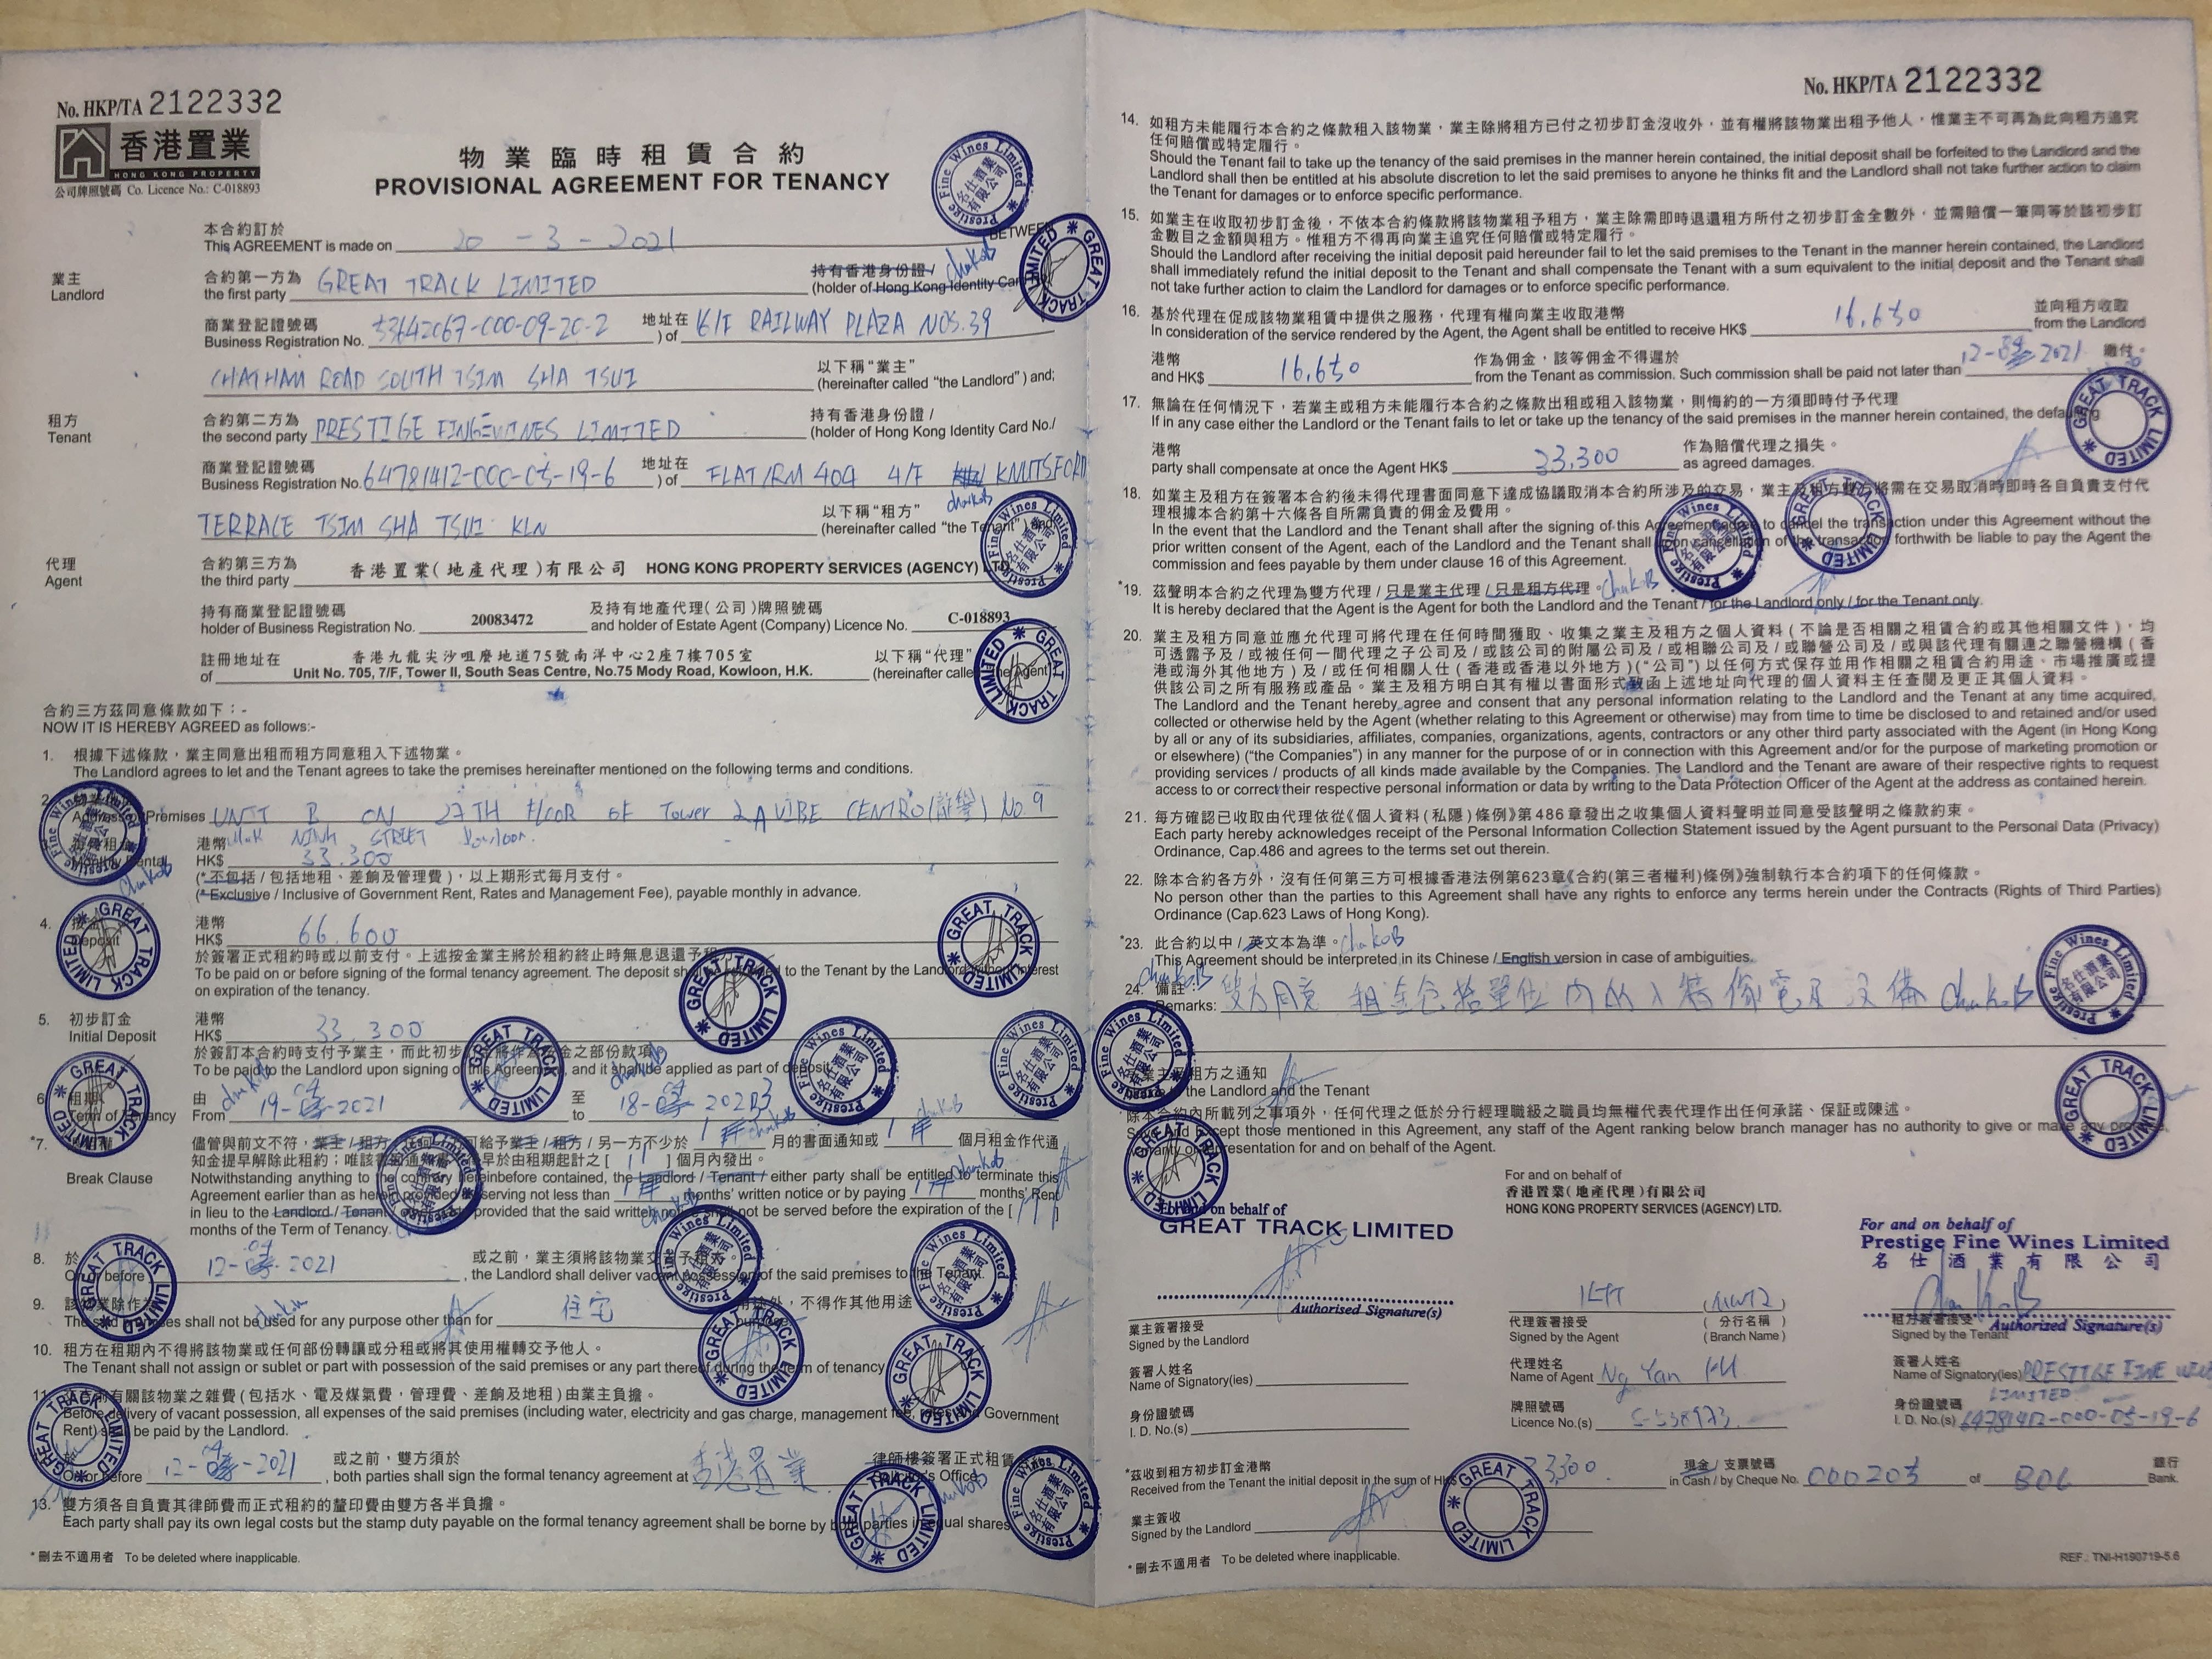 No. HKP/TA 2122332
香港置業
HONG KONG PROPERTY
公司牌照號碼 Co. Licence No.: C-018893
物業臨時租賃合約
PROVISIONAL AGREEMENT FOR TENANCY
本合約訂於
This AGREEMENT is made on 20 - 3 - 2021 BETWEEN
業主 合約第一方為 持有香港身份證/
Landlord the first party GREAT TRACK LIMITED (holder of Hong Kong Identity Card
商業登記證號碼 地址在
Business Registration No. 53642067-000-09-20-2 ) of 6/F RAILWAY PLAZA NOS.39
CHATHAM ROAD SOUTH TSIM SHA TSUI 以下稱“業主”
(hereinafter called “the Landlord”) and;
租方 合約第二方為 持有香港身份證 /
Tenant the second party PRESTIGE FINE WINES LIMITED (holder of Hong Kong Identity Card No./
商業登記證號碼 地址在
Business Registration No. 64781412-000-05-19-6 ) of FLAT/RM 404 4/F KNUTSFORD
TERRACE TSIM SHA TSUI KLN 以下稱“租方”
(hereinafter called “the Tenant”) and;
代理 合約第三方為
Agent the third party 香港置業(地產代理)有限公司 HONG KONG PROPERTY SERVICES (AGENCY) LTD
持有商業登記證號碼 及持有地產代理(公司)牌照號碼
holder of Business Registration No. 20083472 and holder of Estate Agent (Company) Licence No. C-018893
註冊地址在 香港九龍尖沙咀麼地道75號南洋中心2座7樓705室 以下稱“代理”
of Unit No. 705, 7/F, Tower II, South Seas Centre, No.75 Mody Road, Kowloon, H.K. (hereinafter called the Agent)
合約三方茲同意條款如下：-
NOW IT IS HEREBY AGREED as follows:-
1. 根據下述條款，業主同意出租而租方同意租入下述物業。
The Landlord agrees to let and the Tenant agrees to take the premises hereinafter mentioned on the following terms and conditions.
2. Premises UNIT B ON 27TH FLOOR OF Tower 2A VIBE CENTRO No. 9
NING STREET Kowloon.
港幣
Monthly Rental HK$ 33,300
(*不包括 / 包括地租、差餉及管理費)，以上期形式每月支付。
(*Exclusive / Inclusive of Government Rent, Rates and Management Fee), payable monthly in advance.
4. 按金 港幣
Deposit HK$ 66,600
於簽署正式租約時或以前支付。上述按金業主將於租約終止時無息退還予租
To be paid on or before signing of the formal tenancy agreement. The deposit shall be refunded to the Tenant by the Landlord without interest
on expiration of the tenancy.
5. 初步訂金 港幣
Initial Deposit HK$ 33,300
於簽訂本合約時支付予業主，而此初步 金之部份款項
To be paid to the Landlord upon signing of this Agreement, and it shall be applied as part of deposit
6. 租期 由 至
Term of Tenancy From 19-04-2021 to 18-04-2023
*7. 儘管與前文不符，業主 / 租方 可給予業主 / 租方 / 另一方不少於 1 月的書面通知或 1 個月租金作代通
知金提早解除此租約；唯該 早於由租期起計之 [ 11 ] 個月內發出。
Break Clause Notwithstanding anything to the contrary hereinbefore contained, the Landlord / Tenant / either party shall be entitled to terminate this
Agreement earlier than as herein provided by serving not less than 1 months' written notice or by paying 1 months' Rent
in lieu to the Landlord / Tenant provided that the said written notice shall not be served before the expiration of the [ 11
months of the Term of Tenancy.
8. 於 或之前，業主須將該物業交
On or before 12-04-2021 , the Landlord shall deliver vacant possession of the said premises to the Tenant.
9. 該物業除作 用途外，不得作其他用途
The said premises shall not be used for any purpose other than for 住宅 purpose
10. 租方在租期內不得將該物業或任何部份轉讓或分租或將其使用權轉交予他人。
The Tenant shall not assign or sublet or part with possession of the said premises or any part thereof during the term of tenancy
11. 有關該物業之雜費(包括水、電及煤氣費，管理費、差餉及地租)由業主負擔。
Before delivery of vacant possession, all expenses of the said premises (including water, electricity and gas charge, management fee, rates and Government
Rent) shall be paid by the Landlord.
於 或之前，雙方須於 律師樓簽署正式租賃
On or before 12-04-2021 , both parties shall sign the formal tenancy agreement at 香港置業 Solicitor's Office
13. 雙方須各自負責其律師費而正式租約的釐印費由雙方各半負擔。
Each party shall pay its own legal costs but the stamp duty payable on the formal tenancy agreement shall be borne by both parties in equal shares
*刪去不適用者 To be deleted where inapplicable.
No. HKP/TA 2122332
14. 如租方未能履行本合約之條款租入該物業，業主除將租方已付之初步訂金沒收外，並有權將該物業出租予他人，惟業主不可再為此向租方追究
任何賠償或特定履行。
Should the Tenant fail to take up the tenancy of the said premises in the manner herein contained, the initial deposit shall be forfeited to the Landlord and the
Landlord shall then be entitled at his absolute discretion to let the said premises to anyone he thinks fit and the Landlord shall not take further action to claim
the Tenant for damages or to enforce specific performance.
15. 如業主在收取初步訂金後，不依本合約條款將該物業租予租方，業主除需即時退還租方所付之初步訂金全數外，並需賠償一筆同等於該初步訂
金數目之金額與租方。惟租方不得再向業主追究任何賠償或特定履行。
Should the Landlord after receiving the initial deposit paid hereunder fail to let the said premises to the Tenant in the manner herein contained, the Landlord
shall immediately refund the initial deposit to the Tenant and shall compensate the Tenant with a sum equivalent to the initial deposit and the Tenant shall
not take further action to claim the Landlord for damages or to enforce specific performance.
16. 基於代理在促成該物業租賃中提供之服務，代理有權向業主收取港幣 並向租方收取
In consideration of the service rendered by the Agent, the Agent shall be entitled to receive HK$ 16,650 from the Landlord
港幣 作為佣金，該等佣金不得遲於 繳付。
and HK$ 16,650 from the Tenant as commission. Such commission shall be paid not later than 12- 2021
17. 無論在任何情況下，若業主或租方未能履行本合約之條款出租或租入該物業，則悔約的一方須即時付予代理
If in any case either the Landlord or the Tenant fails to let or take up the tenancy of the said premises in the manner herein contained, the defaulting
港幣 作為賠償代理之損失。
party shall compensate at once the Agent HK$ 33,300 as agreed damages.
18. 如業主及租方在簽署本合約後未得代理書面同意下達成協議取消本合約所涉及的交易，業主及租方雙方將需在交易取消時即時各自負責支付代
理根據本合約第十六條各自所需負責的佣金及費用。
In the event that the Landlord and the Tenant shall after the signing of this Agreement agree to cancel the transaction under this Agreement without the
prior written consent of the Agent, each of the Landlord and the Tenant shall upon cancellation of the transaction forthwith be liable to pay the Agent the
commission and fees payable by them under clause 16 of this Agreement.
*19. 茲聲明本合約之代理為雙方代理 / 只是業主代理 / 只是租方代理。
It is hereby declared that the Agent is the Agent for both the Landlord and the Tenant / for the Landlord only / for the Tenant only.
20. 業主及租方同意並應允代理可將代理在任何時間獲取、收集之業主及租方之個人資料(不論是否相關之租賃合約或其他相關文件)，均
可透露予及 / 或被任何一間代理之子公司及 / 或該公司的附屬公司及 / 或相聯公司及 / 或聯營公司及 / 或與該代理有關連之聯營機構(香
港或海外其他地方)及 / 或任何相關人仕(香港或香港以外地方)(“公司”)以任何方式保存並用作相關之租賃合約用途、市場推廣或提
供該公司之所有服務或產品。業主及租方明白其有權以書面形式致函上述地址向代理的個人資料主任查閱及更正其個人資料。
The Landlord and the Tenant hereby agree and consent that any personal information relating to the Landlord and the Tenant at any time acquired,
collected or otherwise held by the Agent (whether relating to this Agreement or otherwise) may from time to time be disclosed to and retained and/or used
by all or any of its subsidiaries, affiliates, companies, organizations, agents, contractors or any other third party associated with the Agent (in Hong Kong
or elsewhere) (“the Companies”) in any manner for the purpose of or in connection with this Agreement and/or for the purpose of marketing promotion or
providing services / products of all kinds made available by the Companies. The Landlord and the Tenant are aware of their respective rights to request
access to or correct their respective personal information or data by writing to the Data Protection Officer of the Agent at the address as contained herein.
21. 每方確認已收取由代理依從《個人資料(私隱)條例》第486章發出之收集個人資料聲明並同意受該聲明之條款約束。
Each party hereby acknowledges receipt of the Personal Information Collection Statement issued by the Agent pursuant to the Personal Data (Privacy)
Ordinance, Cap.486 and agrees to the terms set out therein.
22. 除本合約各方外，沒有任何第三方可根據香港法例第623章《合約(第三者權利)條例》強制執行本合約項下的任何條款。
No person other than the parties to this Agreement shall have any rights to enforce any terms herein under the Contracts (Rights of Third Parties)
Ordinance (Cap.623 Laws of Hong Kong).
*23. 此合約以中 / 英文本為準。
This Agreement should be interpreted in its Chinese / English version in case of ambiguities.
24. 備註：
Remarks: 雙方同意 租金包括單位內 傢電及設備
業主及租方之通知
to the Landlord and the Tenant
除本合約內所載列之事項外，任何代理之低於分行經理職級之職員均無權代表代理作出任何承諾、保証或陳述。
Save and except those mentioned in this Agreement, any staff of the Agent ranking below branch manager has no authority to give or make any promise,
warranty or representation for and on behalf of the Agent.
For and on behalf of
GREAT TRACK LIMITED
Authorised Signature(s)
業主簽署接受
Signed by the Landlord
簽署人姓名
Name of Signatory(ies)
身份證號碼
I. D. No.(s)
For and on behalf of
香港置業(地產代理)有限公司
HONG KONG PROPERTY SERVICES (AGENCY) LTD.
代理簽署接受 ( 分行名稱 )
Signed by the Agent (Branch Name)
代理姓名
Name of Agent Ng Yan
牌照號碼
Licence No.(s) S-538973
For and on behalf of
Prestige Fine Wines Limited
名仕酒業有限公司
Authorized Signature(s)
租方簽署接受
Signed by the Tenant
簽署人姓名
Name of Signatory(ies) PRESTIGE FINE WINE
LIMITED
身份證號碼
I. D. No.(s) 64781412-000-05-19-6
*茲收到租方初步訂金港幣 現金 / 支票號碼 銀行
Received from the Tenant the initial deposit in the sum of HK$ 33,300 in Cash / by Cheque No. 000205 of BOC Bank.
業主簽收
Signed by the Landlord
*刪去不適用者 To be deleted where inapplicable.
REF.: TNI-H190719-5.6